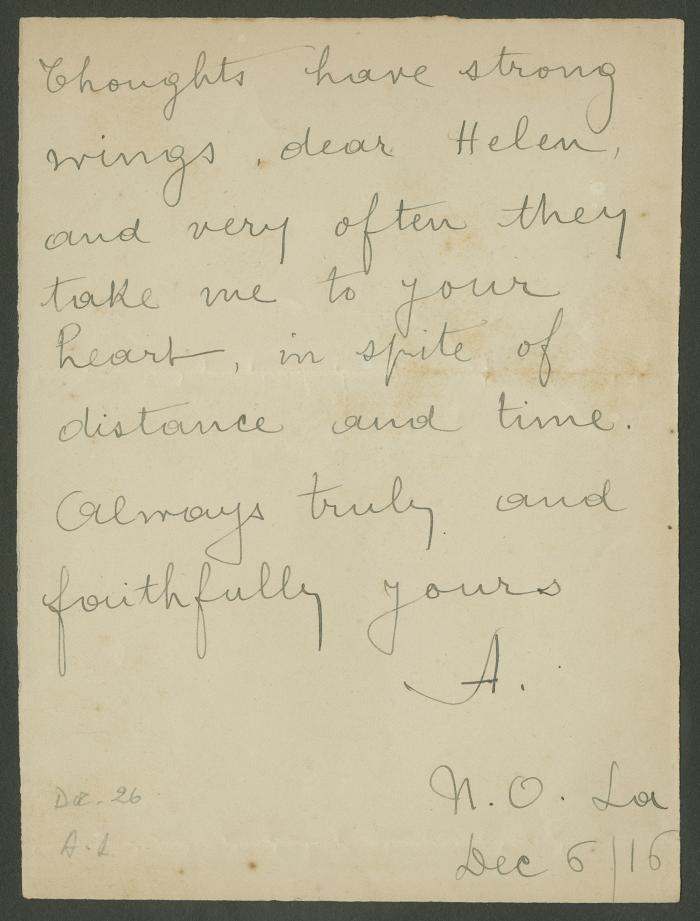 Thoughts have strong
wings, dear Helen,
and very often they
take me to your
heart, in spite of
distance and time.
Always truly and
faithfully yours
A.
N. O. La
Dec 6/16
Dec. 26
A. L